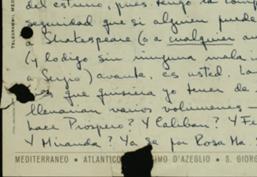 del estreno, pues tengo la comp
seguridad que si alguien puede
a Shakespeare (o a cualquier au
(y lodigo sin ninguna mala in
a Sergio) avante, es usted. La
es que quisiera yo tener de
llenarían varios volúmenes —
hace Próspero? Y Caliban? Y Fe
Y Miranda? Ya se por Rosa Ma.
MEDITERRANEO • ATLANTICO IMO D'AZEGLIO • S. GIORG